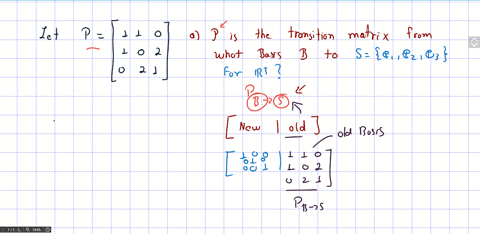 Let P = [ 1 1 0
1 0 2
0 2 1 ]
a) P is the transition matrix from
what Basis B to S = {e1, e2, e3}
For R3 ?
P B→S
[ New | old ]
old Basis
[ 1 0 0 | 1 1 0
0 1 0 | 1 0 2
0 0 1 | 0 2 1 ]
P B→S